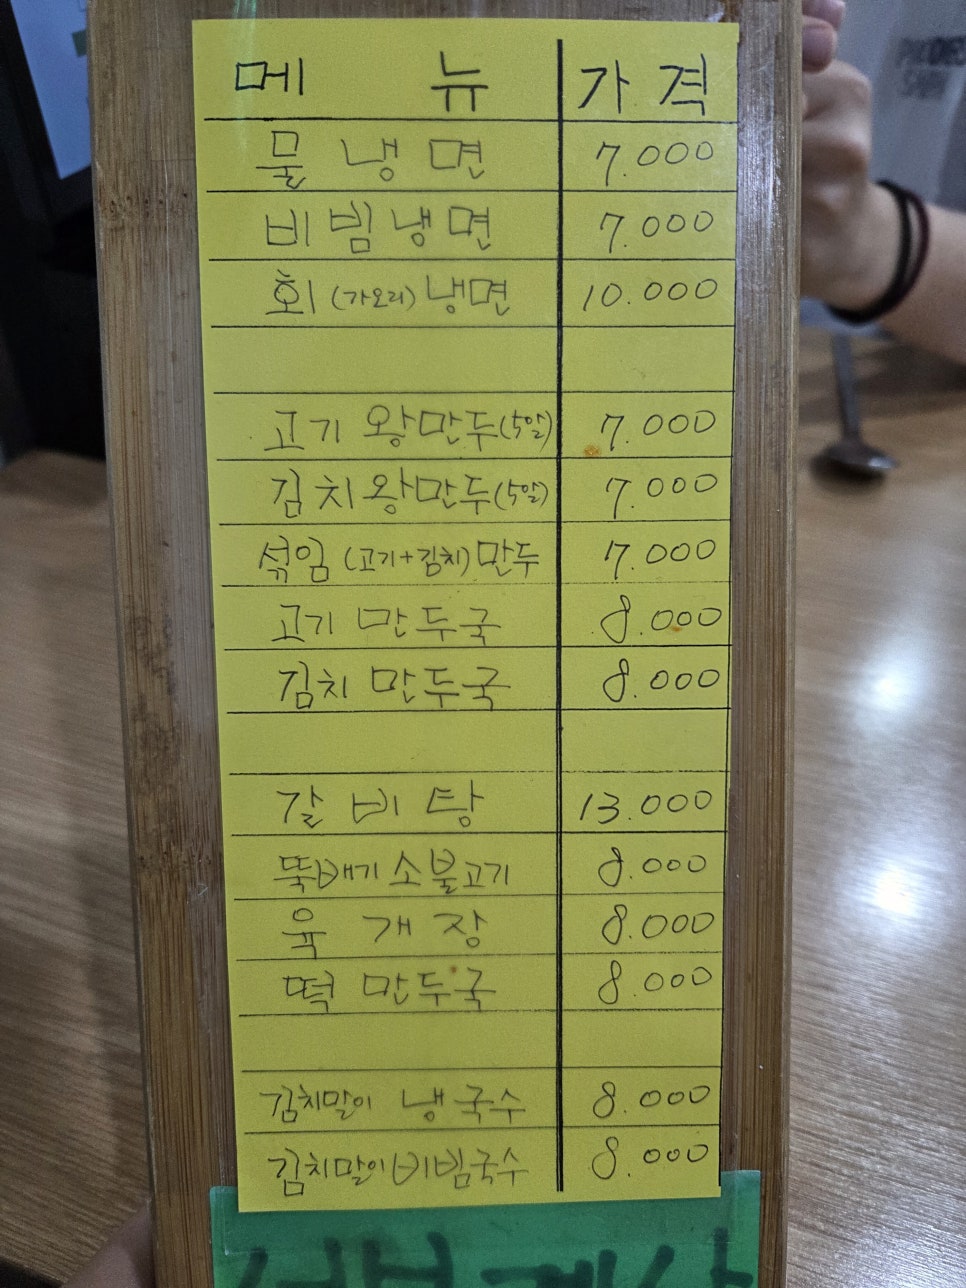 메 뉴 가 격
물 냉 면 7.000
비 빔 냉 면 7.000
회 (가오리) 냉면 10.000
고기 왕만두(5알) 7.000
김치왕만두(5알) 7.000
섞임 (고기+김치) 만두 7.000
고기 만두국 8.000
김치 만두국 8.000
갈 비 탕 13.000
뚝배기 소불고기 8.000
육 개 장 8.000
떡 만두국 8.000
김치말이 냉국수 8.000
김치말이비빔국수 8.000